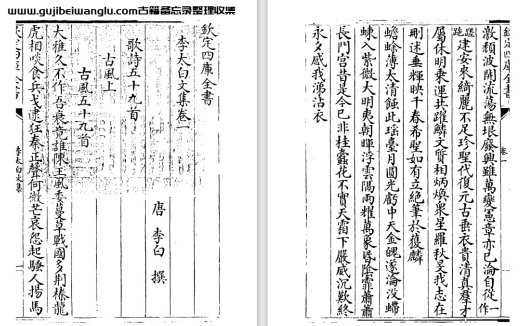 www.gujibeiwanglu.com古籍备忘录整理收集
欽定四庫全書
李太白文集卷二
唐 李白 撰
歌詩五十九首
古風上
古風五十九首
大雅久不作吾衰竟誰陳王風委蔓草戰國多荆榛龍
虎相啖食兵戈逮狂秦正聲何微茫哀怨起騷人揚馬
李太白文集
欽定四庫全書
激頹波開流蕩無垠廢興雖萬變憲章亦已淪自從一作
蹉跎建安來綺麗不足珍聖代復元古垂衣貴清真羣才
屬休明乘運共躍鱗文質相炳煥衆星羅秋旻我志在
刪述垂輝映千春希聖如有立絕筆於獲麟
蟾蜍薄太清蝕此瑤臺月圓光虧中天金魄遂淪沒螮
蝀入紫微大明夷朝暉浮雲隔兩耀萬象昏陰霏蕭蕭
長門宮昔是今已非桂蠹花不實天霜下嚴威沉歎終
永夕感我涕沾衣